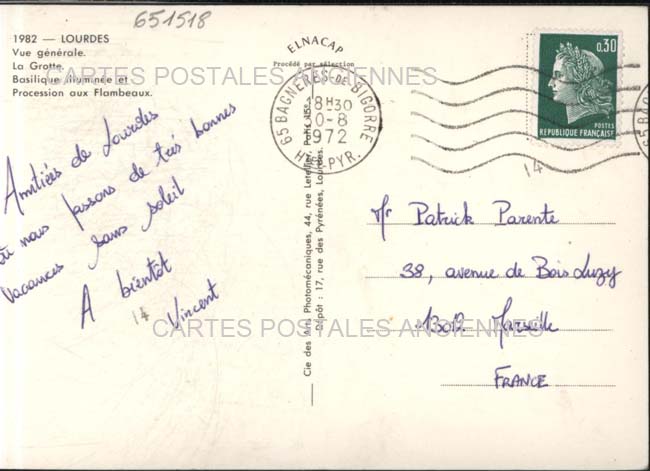 651518
1982 — LOURDES
Vue générale.
La Grotte.
Basilique illuminée et
Procession aux Flambeaux.
ELNACAP
Procédé par sélection
CARTES POSTALES ANCIENNES
65 BAGNERES-DE-BIGORRE
18H30
10-8
1972
HTES-PYR.
0,30
POSTES
REPUBLIQUE FRANÇAISE
65 BAG
14
Amitiés de Lourdes
où nous passons de très bonnes
vacances sans soleil
A bientôt
Vincent
14
Mr Patrick Parente
38, avenue de Bois Luzy
13012 Marseille
FRANCE
CARTES POSTALES ANCIENNES
Cie des Arts Photomécaniques, 44, rue Letellier, Paris 15e
Dépôt : 17, rue des Pyrénées, Lourdes.